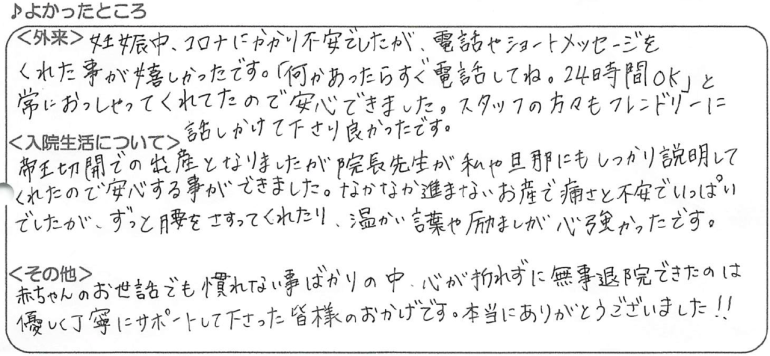 ♪よかったところ
<外来> 妊娠中、コロナにかかり不安でしたが、電話やショートメッセージを
くれた事が嬉しかったです。「何かあったらすぐ電話してね。24時間OK」と
常におっしゃってくれてたので安心できました。スタッフの方々もフレンドリーに
話しかけて下さり良かったです。
<入院生活について>
帝王切開での出産となりましたが院長先生が私や旦那にもしっかり説明して
くれたので安心する事ができました。なかなか進まないお産で痛さと不安でいっぱい
でしたが、ずっと腰をさすってくれたり、温かい言葉や励ましが心強かったです。
<その他>
赤ちゃんのお世話でも慣れない事ばかりの中、心が折れずに無事退院できたのは
優しく丁寧にサポートして下さった皆様のおかげです。本当にありがとうございました!!